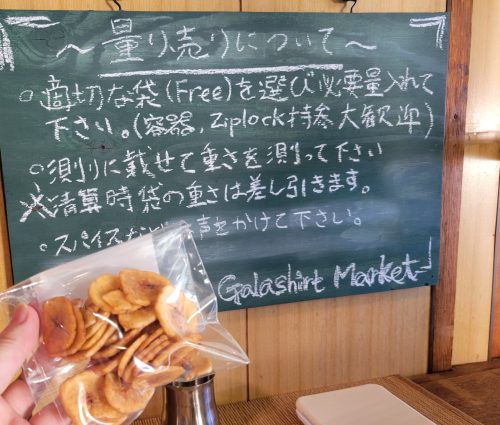 ~量り売りについて~
○適切な袋(Free)を選び必要量入れて
下さい。(容器, Ziplock持参大歓迎)
○測りに載せて重さを測って下さい
※清算時袋の重さは差し引きます。
○スパイスなど 声をかけて下さい。
Galashirt Market